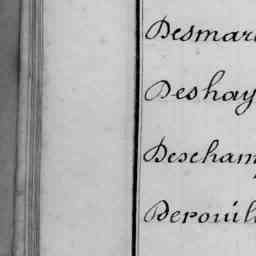 Desmar
Deshay
Descham
Derouil